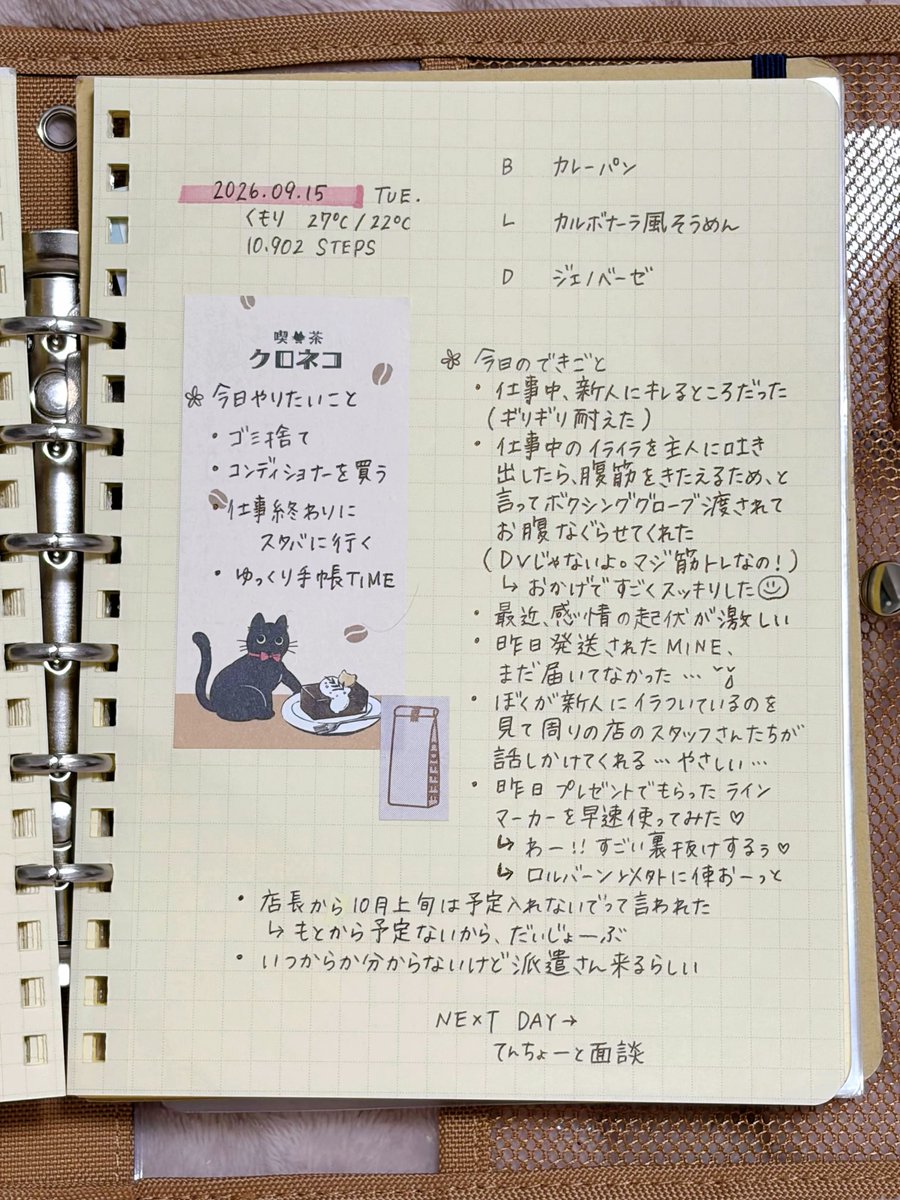 2026.09.15 TUE.
くもり 27℃/22℃
10.902 STEPS
B カレーパン
L カルボナーラ風そうめん
D ジェノベーゼ
喫茶
クロネコ
今日やりたいこと
・ゴミ捨て
・コンディショナーを買う
・仕事終わりに
スタバに行く
・ゆっくり手帳TIME
今日のできごと
・仕事中、新人にキレるところだった
(ギリギリ耐えた)
・仕事中のイライラを主人に吐き
出したら、腹筋をきたえるため、と
言ってボクシンググローブ渡されて
お腹なぐらせてくれた
(DVじゃないよ。マジ筋トレなの!)
↳おかげですごくスッキリした
・最近、感情の起伏が激しい
・昨日発送されたMINE、
まだ届いてなかった…
・ぼくが新人にイラついているのを
見て周りの店のスタッフさんたちが
話しかけてくれる…やさしい…
・昨日プレゼントでもらったライン
マーカーを早速使ってみた♡
↳わー!!すごい裏抜けするぅ♡
↳ロルバーン以外に使おーっと
・店長から10月上旬は予定入れないでって言われた
↳もとから予定ないから、だいじょーぶ
・いつからか分からないけど派遣さん来るらしい
NEXT DAY→
てんちょーと面談